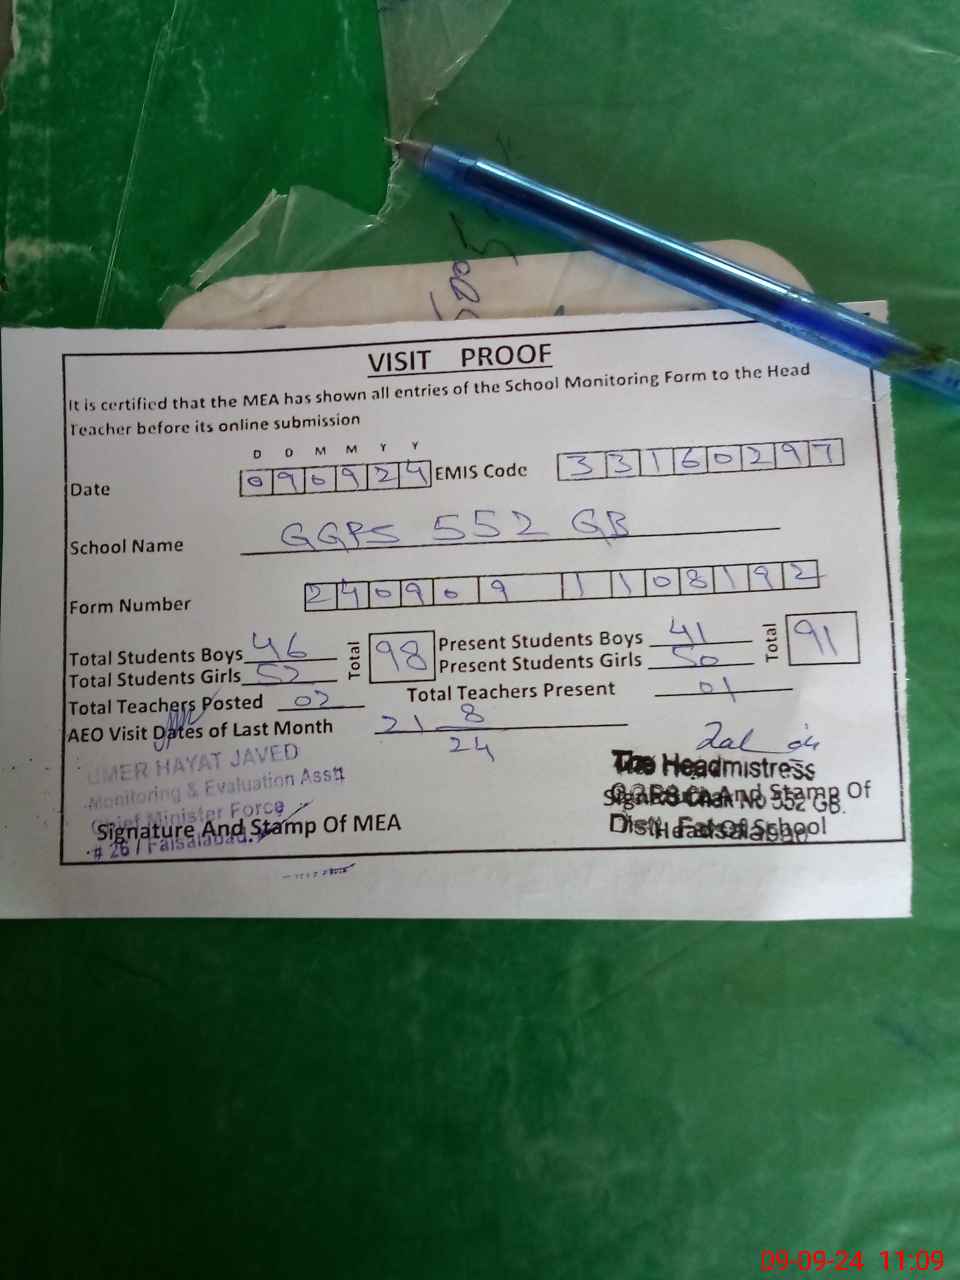 VISIT PROOF
It is certified that the MEA has shown all entries of the School Monitoring Form to the Head
Teacher before its online submission
D D M M Y Y
Date 090924 EMIS Code 33160297
School Name GGPS 552 GB
Form Number 240909 1108192
Total Students Boys 46 Total 98 Present Students Boys 41 Total 91
Total Students Girls 52 Present Students Girls 50
Total Teachers Posted 02 Total Teachers Present 01
AEO Visit Dates of Last Month 21 8 24
UMER HAYAT JAVED
Monitoring & Evaluation Asstt
Chief Minister Force
# 26 / Faisalabad.
Signature And Stamp Of MEA
The Headmistress
Chak No 552 GB.
Signature And Stamp Of
Distt. Faisalabad
Head Of School
09-09-24 11:09